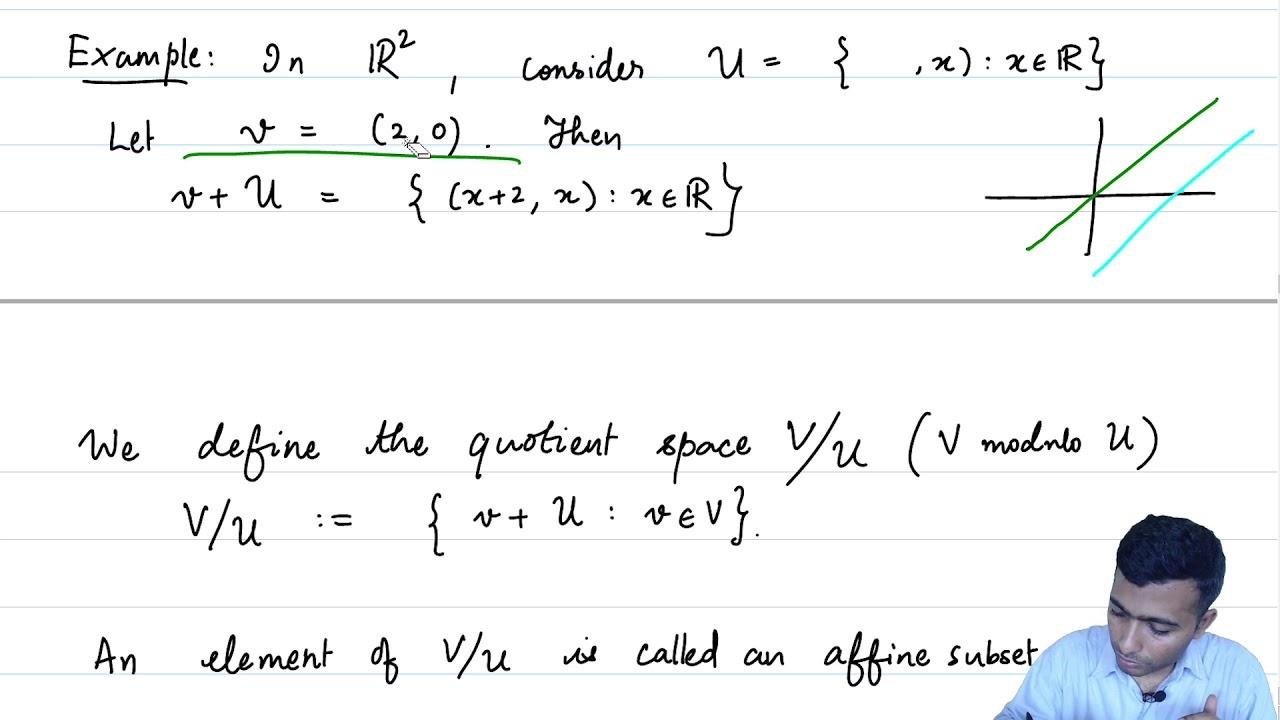 Example: In ℝ², consider U = { , x) : x ∈ ℝ}
Let v = (2, 0). Then
v + U = { (x+2, x) : x ∈ ℝ}
We define the quotient space V/U (V modulo U)
V/U := { v + U : v ∈ V}.
An element of V/U is called an affine subset